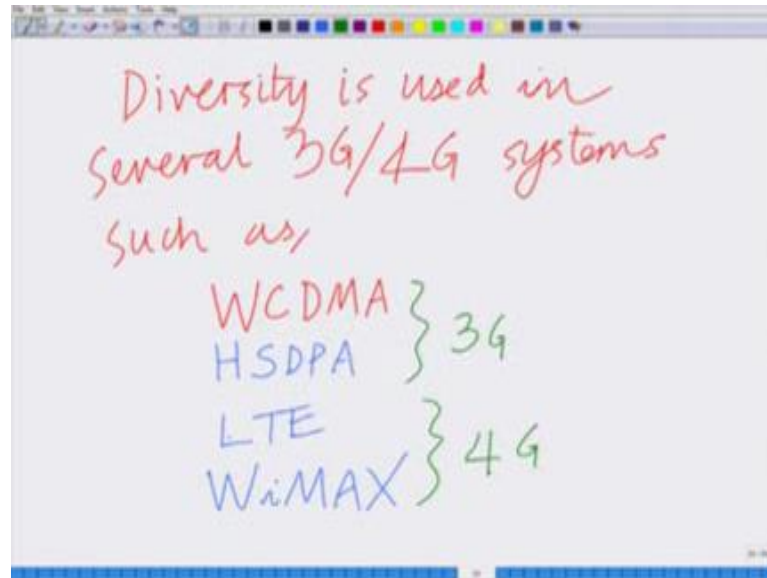 Diversity is used in
several 3G/4G systems
such as,
WCDMA
HSDPA } 3G
LTE
WiMAX } 4G